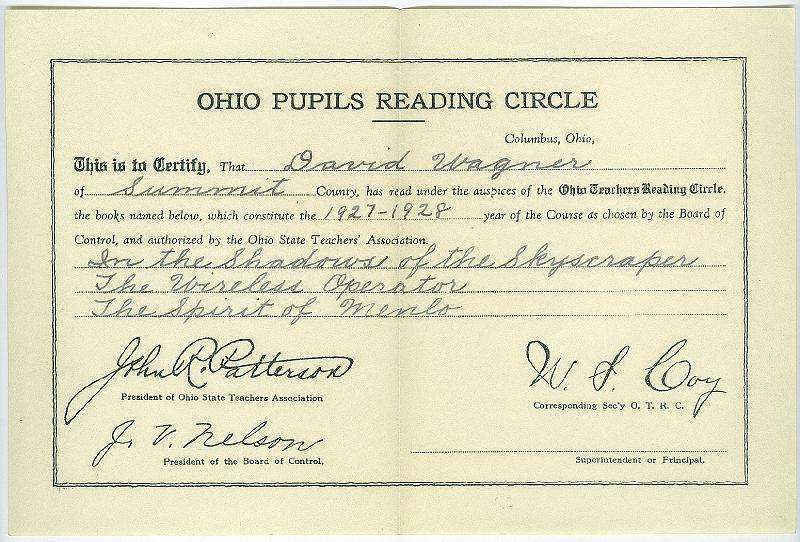 OHIO PUPILS READING CIRCLE
Columbus, Ohio,
This is to Certify, That David Wagner
of Summit County, has read under the auspices of the Ohio Teachers Reading Circle,
the books named below, which constitute the 1927-1928 year of the Course as chosen by the Board of
Control, and authorized by the Ohio State Teachers' Association.
In the Shadows of the Skyscraper
The Wireless Operator
The Spirit of Menlo
John R. Patterson
President of Ohio State Teachers Association
W. S. Coy
Corresponding Sec'y O. T. R. C.
J. V. Nelson
President of the Board of Control.
Superintendent or Principal.